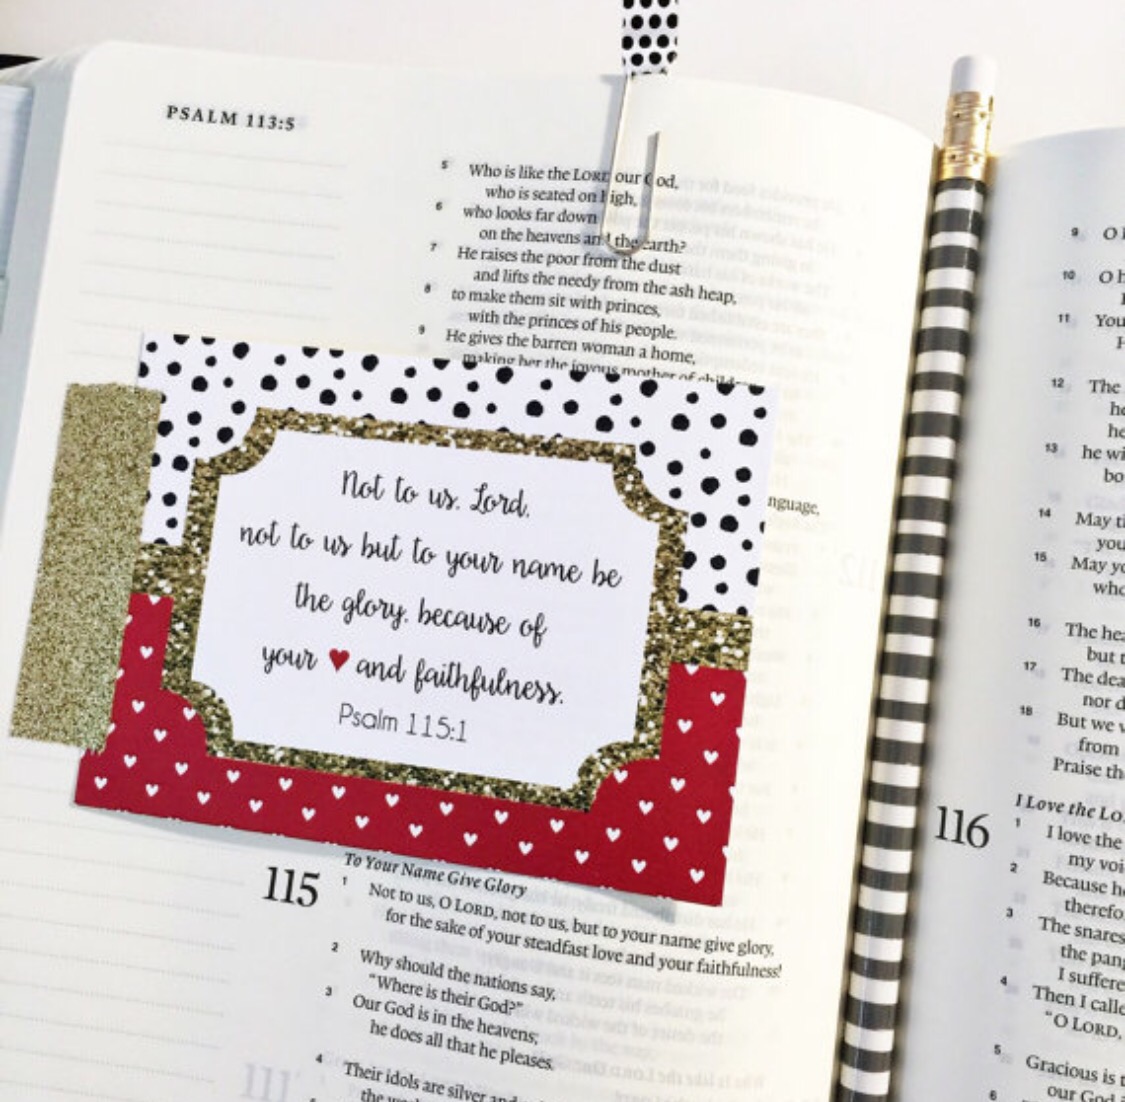 PSALM 113:5
5 Who is like the LORD our God,
who is seated on high,
6 who looks far down
on the heavens and the earth?
7 He raises the poor from the dust
and lifts the needy from the ash heap,
8 to make them sit with princes,
with the princes of his people.
9 He gives the barren woman a home,
making her the joyous mother of
nguage,
Not to us, Lord,
not to us but to your name be
the glory, because of
your ♥ and faithfulness.
Psalm 115:1
To Your Name Give Glory
115
1 Not to us, O LORD, not to us, but to your name give glory,
for the sake of your steadfast love and your faithfulness!
2 Why should the nations say,
“Where is their God?”
3 Our God is in the heavens;
he does all that he pleases.
4 Their idols are silver
the
9 O
10 O
11 You
H
12 The
he
he
13 he wi
bo
14 May
you
15 May
who
16 The
but
17 The
nor
18 But we
from
Praise
I Love the
116
1 I love the
my
2 Because
3 The snares
the
I
4 Then I
“O LORD,
5 Gracious is
our God
6